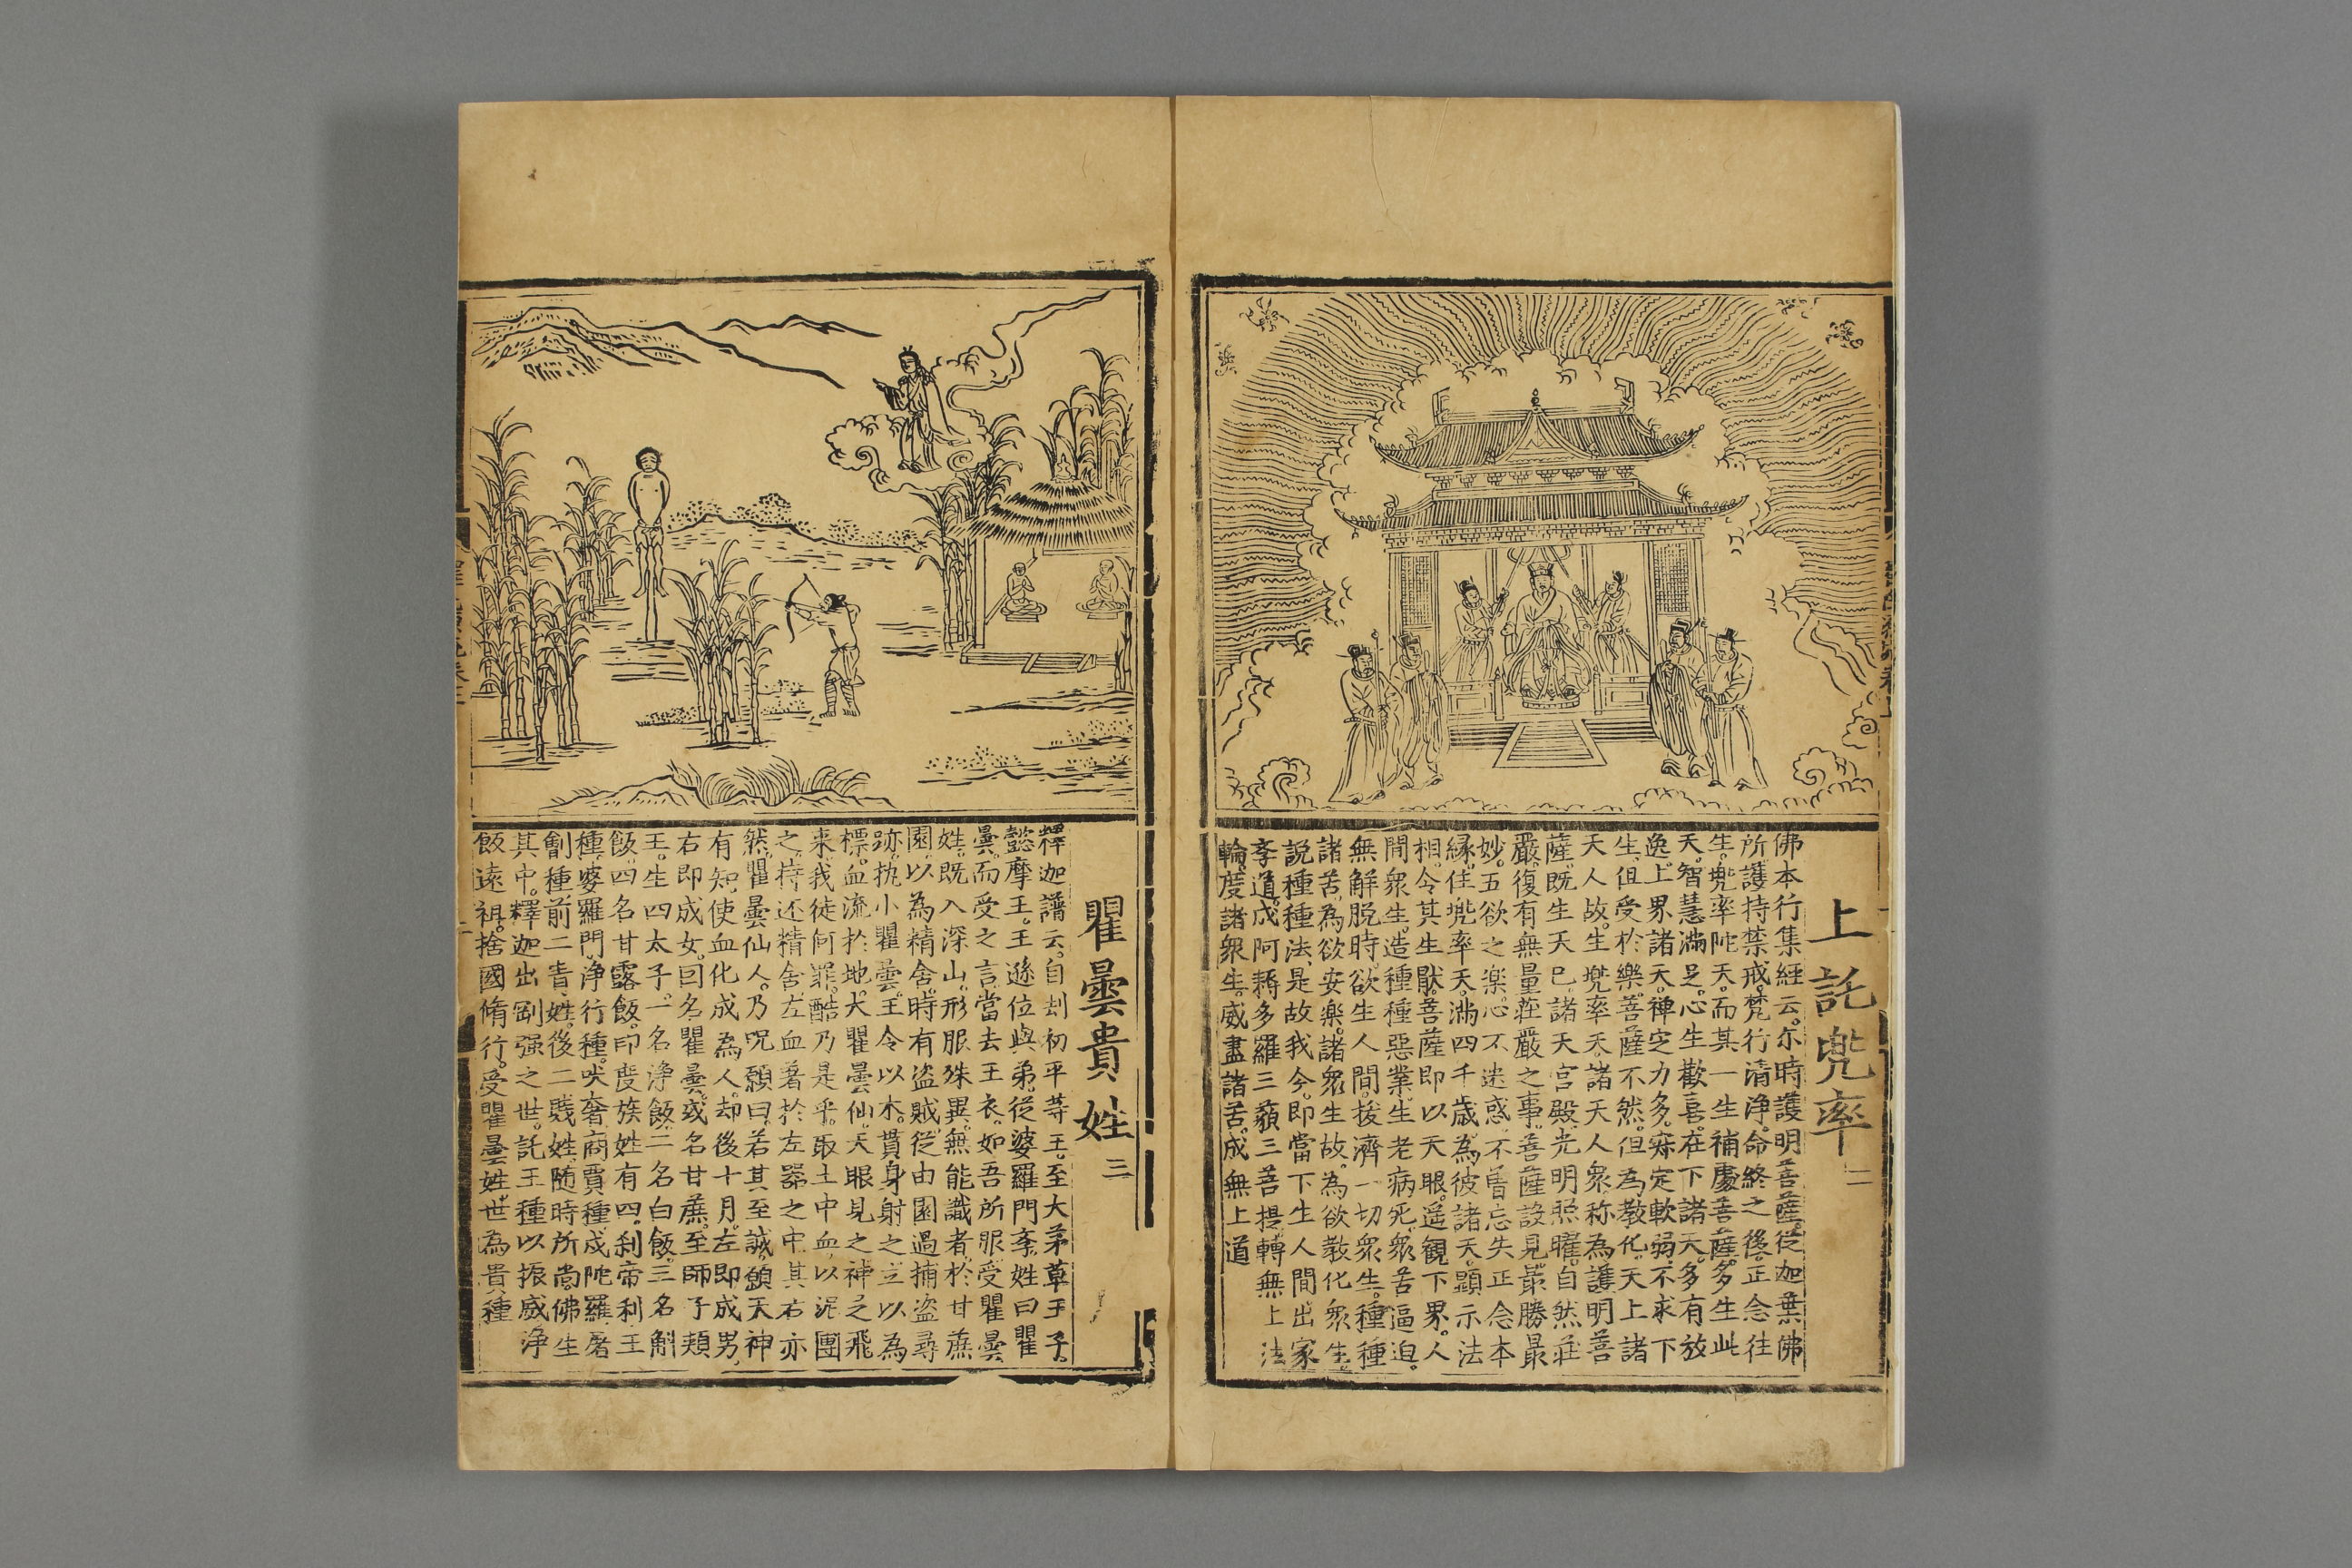 上託兜率 二
佛本行集經云。尒時護明菩薩。從迦葉佛
所。護持禁戒。梵行清淨。命終之後。正念往
生。兜率陁天。而其一生補處菩薩。多生此
天。智慧滿足。心生歡喜。在下諸天。多有放
逸。上界諸天。禅定力多。寂定軟弱。不求下
生。但受於樂。菩薩不然。但為教化。天上諸
天人故。生兜率天。諸天人衆。称為護明菩
薩。既生天已。諸天宮殿。光明照曜。自然莊
嚴。復有無量莊嚴之事。善薩設見。最勝最
妙。五欲之楽。心不迷惑。不曽忘失正念本
縁。住兜率天。滿四千歲。為彼諸天。顯示法
相。令其生猒。菩薩即以天眼。遥観下界。人
間衆生。造種種惡業。生老病死。衆苦逼迫。
無解脱時。欲生人間。拔濟一切衆生。種種
諸苦。為欲安樂。諸衆生故。為欲教化衆生。
説種種法。是故我今。即當下生人間。出家
李道。成阿耨多羅三藐三菩提。轉無上法
輪。度諸衆生。咸盡諸苦。成無上道
瞿曇貴姓 三
釋迦譜云。自刦初平䓁王。至大茅草王子。
懿摩王。王遜位與弟。從婆羅門李。姓曰瞿
曇。而受之言。當去王衣。如吾所服。受瞿曇
姓。既入深山。形服殊異。無能識者。於甘蔗
園。以為精舍。時有盗賊。從由園過。捕盗尋
跡。执小瞿曇。王令以木。貫身射之。立以為
標。血流於地。大瞿曇仙。天眼見之。神足飛
来。我徒何罪。酷乃是乎。取土中血。以泥團
之。持还精舍。左血著於左器之中。其右亦
然。瞿曇仙人。乃咒願曰。若其至誠。願天神
有知。使血化成為人。却後十月。左即成男。
右即成女。因名瞿曇。或名甘蔗。至師子頰
王。生四太子。一名淨飯。二名白飯。三名斛
飯。四名甘露飯。印度族姓有四。刹帝利王
種。婆羅門。淨行種。吠奢。商賈種。戍陁羅。屠
劊種。前二貴姓。後二賎姓。随時所尚。佛生
其中。釋迦出劉强之世。託王種以振威。淨
飯遠祖。捨國脩行。受瞿曇姓。世為貴種